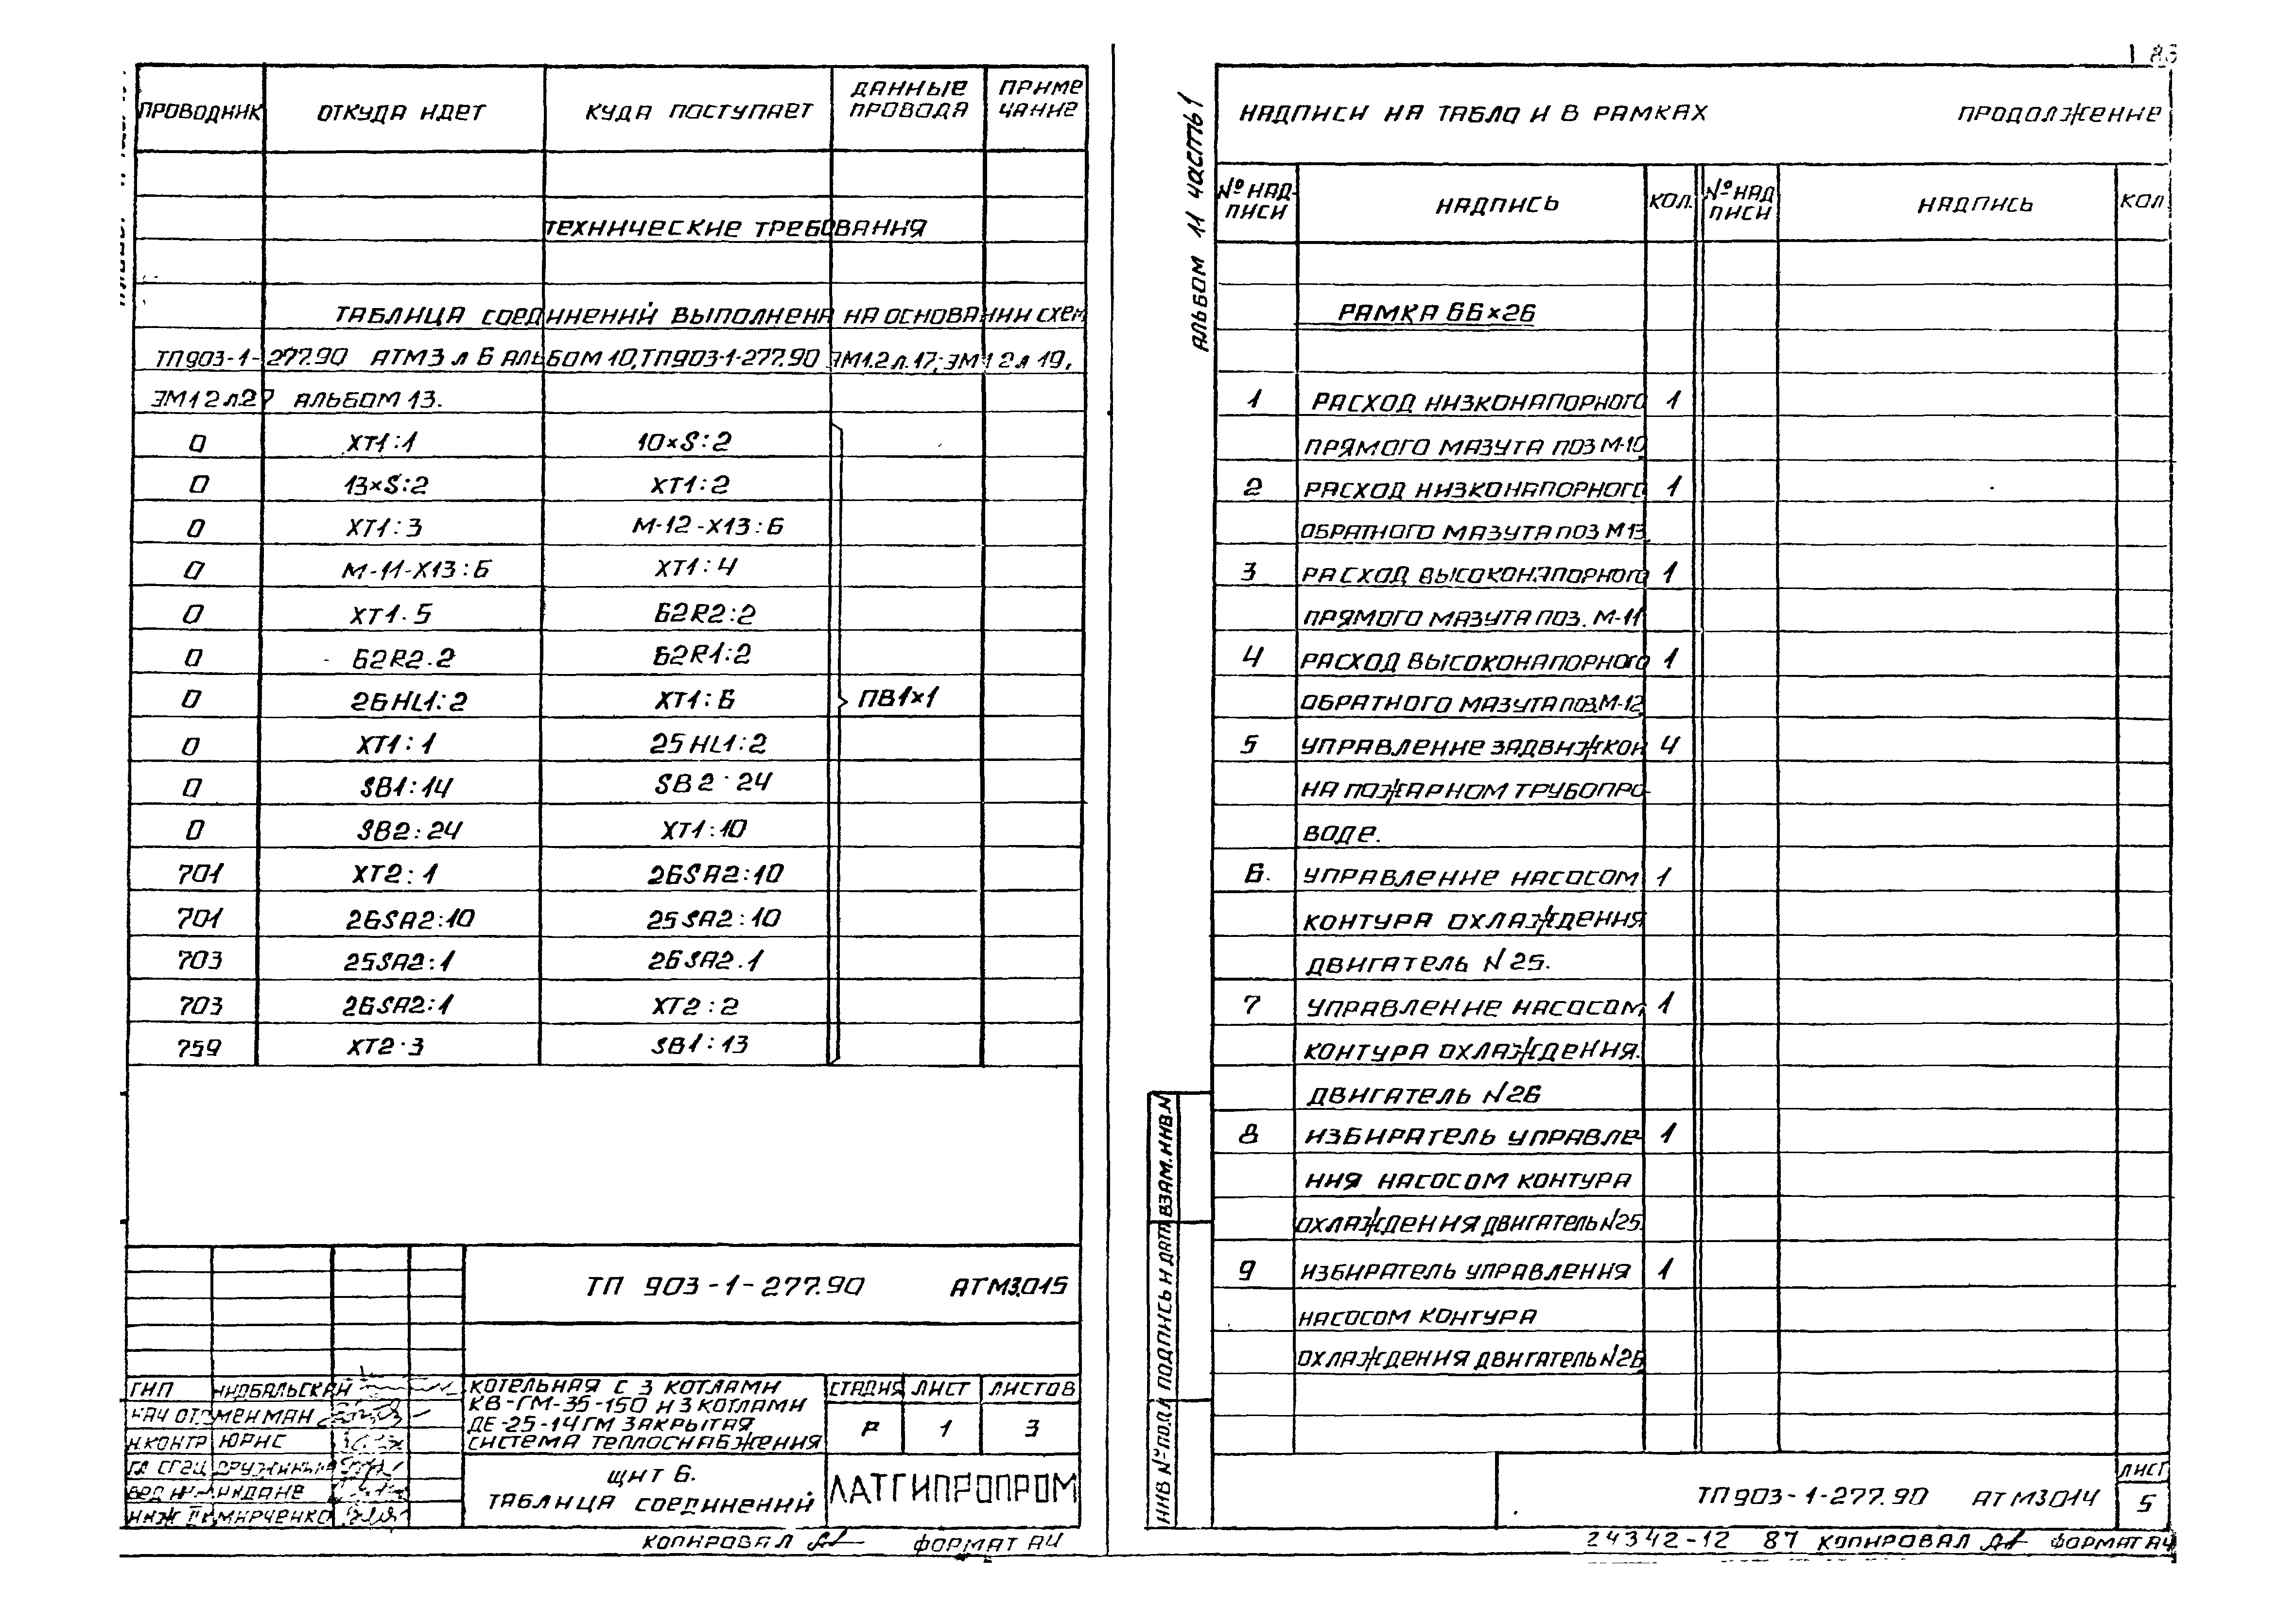 ПРОВОДНИК ОТКУДА ИДЕТ КУДА ПОСТУПАЕТ ДАННЫЕ ПРОВОДА ПРИМЕЧАНИЕ
ТЕХНИЧЕСКИЕ ТРЕБОВАНИЯ
ТАБЛИЦА СОЕДИНЕНИЙ ВЫПОЛНЕНА НА ОСНОВАНИИ СХЕМ
ТП903-1-277.90 АТМ3 л 6 АЛЬБОМ 10, ТП903-1-277.90 ЭМ1.2 л.17; ЭМ1 2 л 19,
ЭМ1 2 л.27 АЛЬБОМ 13.
0 XT1:1 10×S:2
0 13×S:2 XT1:2
0 XT1:3 М-12-X13:6
0 М-11-X13:6 XT1:4
0 XT1.5 62R2:2
0 62R2.2 62R1:2
0 26HL1:2 XT1:6 ПВ1×1
0 XT1:1 25HL1:2
0 SB1:14 SB2:24
0 SB2:24 XT1:10
701 XT2:1 26SA2:10
701 26SA2:10 25SA2:10
703 25SA2:1 26SA2.1
703 26SA2:1 XT2:2
759 XT2·3 SB1:13
ТП 903-1-277.90 АТМ3.015
ГИП
НАЧ ОТ МЕНМАН
Н.КОНТР ЮРИС
МАРЧЕНКО
КОТЕЛЬНАЯ С 3 КОТЛАМИ
КВ-ГМ-35-150 И 3 КОТЛАМИ
ДЕ-25-14ГМ ЗАКРЫТАЯ
СИСТЕМА ТЕПЛОСНАБЖЕНИЯ
СТАДИЯ ЛИСТ ЛИСТОВ
Р 1 3
ЩИТ 6.
ТАБЛИЦА СОЕДИНЕНИЙ
ЛАТГИПРОПРОМ
КОПИРОВАЛ ФОРМАТ А4
АЛЬБОМ 11 часть 1
НАДПИСИ НА ТАБЛО И В РАМКАХ ПРОДОЛЖЕНИЕ
№ НАДПИСИ НАДПИСЬ КОЛ. № НАДПИСИ НАДПИСЬ КОЛ
РАМКА 66×26
1 РАСХОД НИЗКОНАПОРНОГО 1
ПРЯМОГО МАЗУТА ПОЗ М-10
2 РАСХОД НИЗКОНАПОРНОГО 1
ОБРАТНОГО МАЗУТА ПОЗ М13
3 РАСХОД ВЫСОКОНАПОРНОГО 1
ПРЯМОГО МАЗУТА ПОЗ. М-11
4 РАСХОД ВЫСОКОНАПОРНОГО 1
ОБРАТНОГО МАЗУТА ПОЗ.М-12
5 УПРАВЛЕНИЕ ЗАДВИЖКОЙ 4
НА ПОЖАРНОМ ТРУБОПРО-
ВОДЕ.
6. УПРАВЛЕНИЕ НАСОСОМ 1
КОНТУРА ОХЛАЖДЕНИЯ
ДВИГАТЕЛЬ N 25.
7 УПРАВЛЕНИЕ НАСОСОМ 1
КОНТУРА ОХЛАЖДЕНИЯ.
ДВИГАТЕЛЬ N26
8 ИЗБИРАТЕЛЬ УПРАВЛЕ- 1
НИЯ НАСОСОМ КОНТУРА
ОХЛАЖДЕНИЯ ДВИГАТЕЛЬ N25.
9 ИЗБИРАТЕЛЬ УПРАВЛЕНИЯ 1
НАСОСОМ КОНТУРА
ОХЛАЖДЕНИЯ ДВИГАТЕЛЬ N26
ИНВ № ПОДЛ ПОДПИСЬ И ДАТА ВЗАМ.ИНВ.N
ТП903-1-277.90 АТМ3014
ЛИСТ
5
24342-12 87 КОПИРОВАЛ ФОРМАТ А4